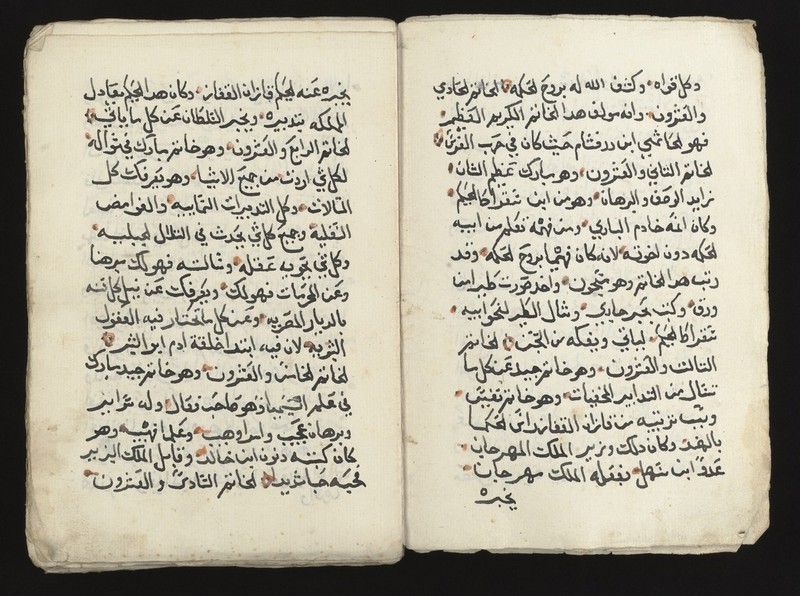 وكل قواه وكشف الله له بروح الحكمه الخاتم الحادي
والعشرون وانه سولف هدا الخاتم الكريم العظيم
فهو الحاشي ابن درقشام حيث كان في حرب الفرس
الخاتم التاني والعشرون وهو مبارك عظيم الشان
زايد الوصف والبرهان وهو من ابن سقراط الحكيم
وكان ابنه خادم الباري ومن نهمه تعلم من ابيه
الحكمه دون اخوته لانه كان فهيما بروح الحكمه وقد
رتب هدا الخاتم وهو مسجون واخد صورت طير ابن
ورق وكتب بحبر جاري وشال الطير الجوابيه
سقراط الحكيم لياتي ويفكه من الحبس الخاتم
التالت والعشرون وهو خاتم جيد عن كل ما
تسال من التدابير المخفيات وهو خاتم نفيس
وبيت ترتيبه من قازان القفار راس الحكما
بالهند وكان دلك وزير الملك المهرجان
عدو ابن سهل بفعله الملك مهرجان
يخبره
يخبره عنه الحكيم قازان القفار وكان هدا الحكيم بعادل
المملكه بتدبيره ويخبر السلطان عن كل ما ياتي
الخاتم الرابع والعشرون وهو خاتم مبارك في سواله
لكل شي اردت من جميع الاشيا وهو يعرفك كل
السالات وكل التدبيرات السمايه والغوامض
التقليه وجميع كل شي يحدث في الظلال لجيليه
وكل شي بجوبه عقله وسالته فهو لك برها
وعن المحرمات فهو لك ويعرفك عن نيل كل سنه
بالديار المصريه وعن كل ما تحتار فيه العقول
التربه لان فيه ابتدا خلقة ادم ابو البشر
الخاتم الخامس والعشرون وهو خاتم جيد مبارك
في علم السيميا فهو صاحب تعال وله تدابير
وبرهان عجيب واسرا وهب وعلما نهيه وهو
كان كتبه دنون ابن خالد وقابل الملك الزير
فحيه حبا شريد الخاتم السادس والعشرون